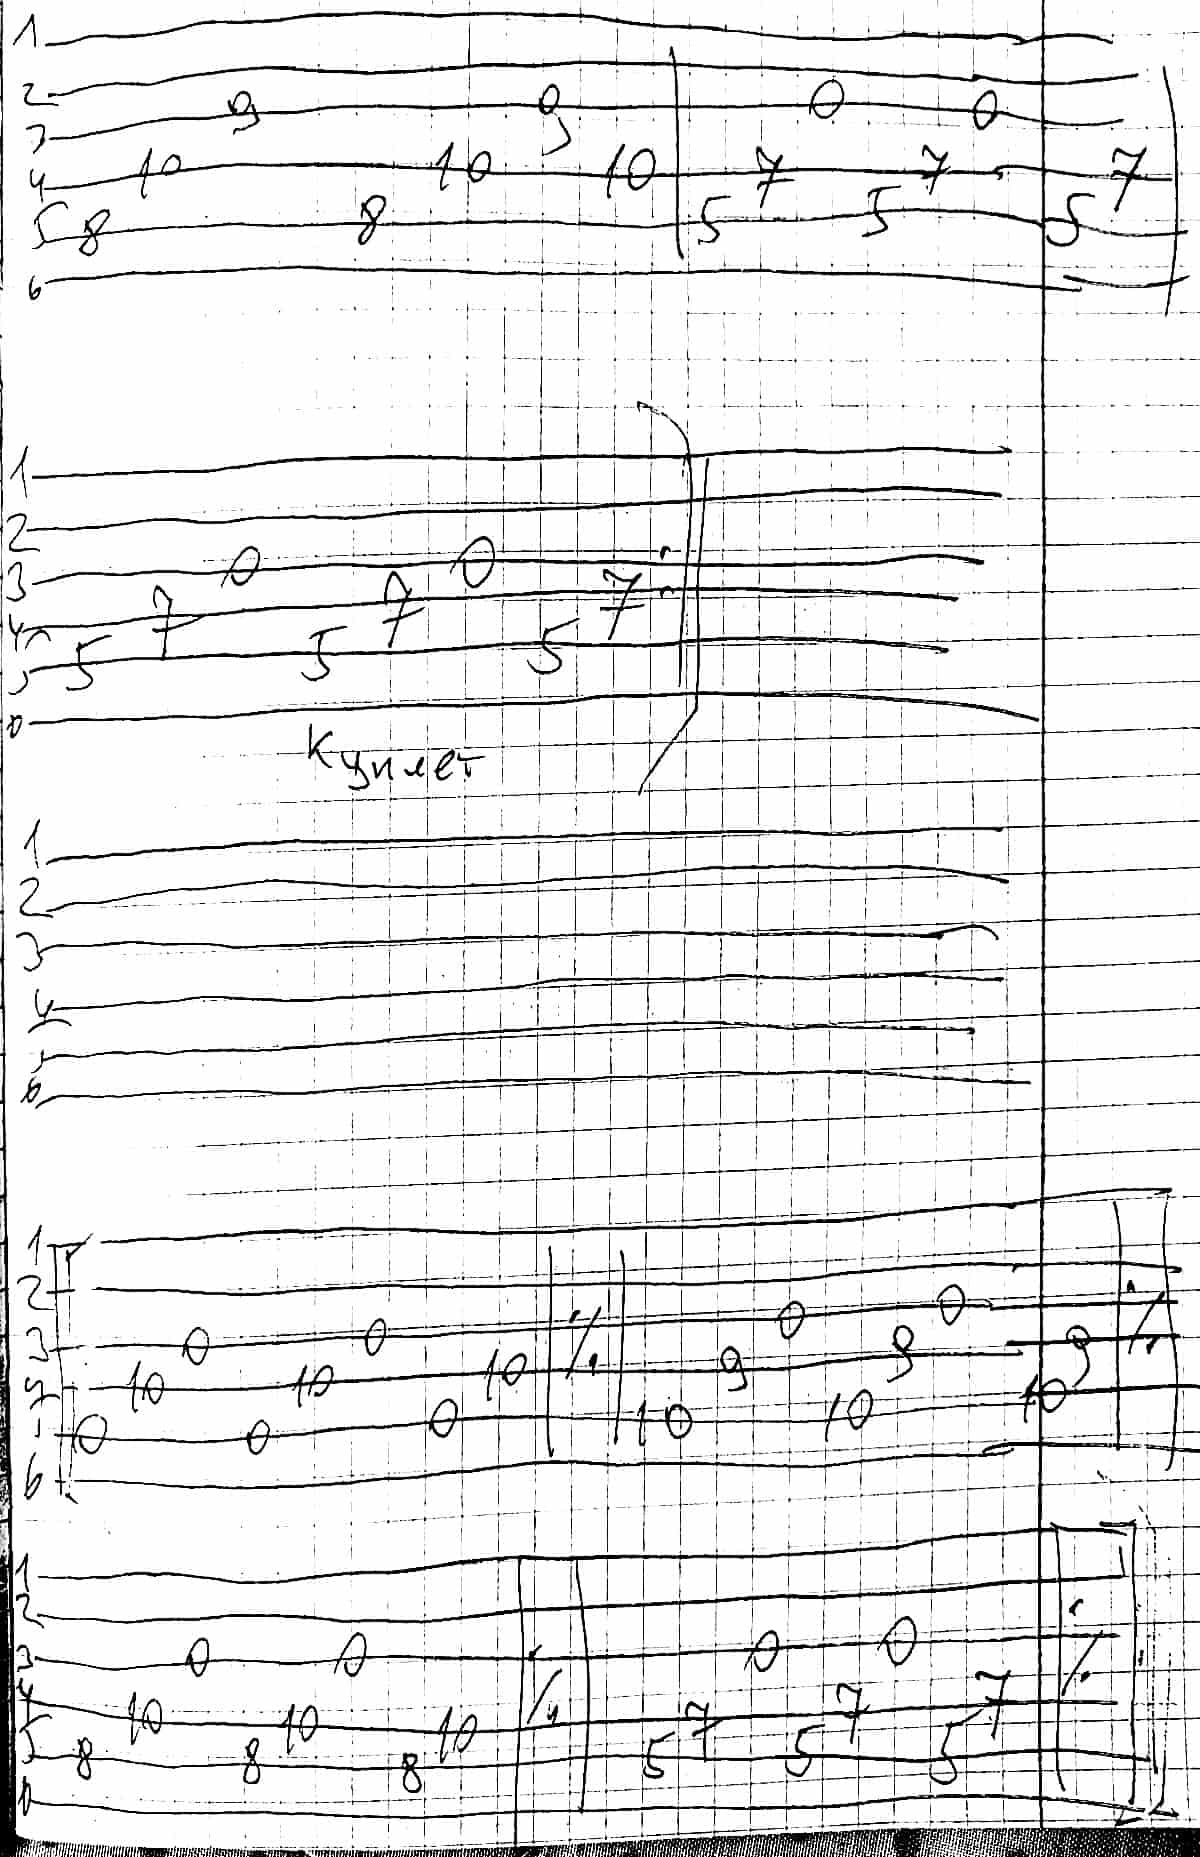 1
2 9 9 0 0
3
4 10 10 10 7 7 7
5 8 8 5 5 5
6
1
2
3 0 0
4 7 7 7
5 5 5 5
6
Куплет
1
2
3
4
5
6
1
2
3 0 0 0 0
4 10 10 10 % 9 9 9 %
5 0 0 0 10 10 10
6
1
2
3 0 0 0 0
4 10 10 10 % 7 7 7 %
5 8 8 8 5 5 5
6